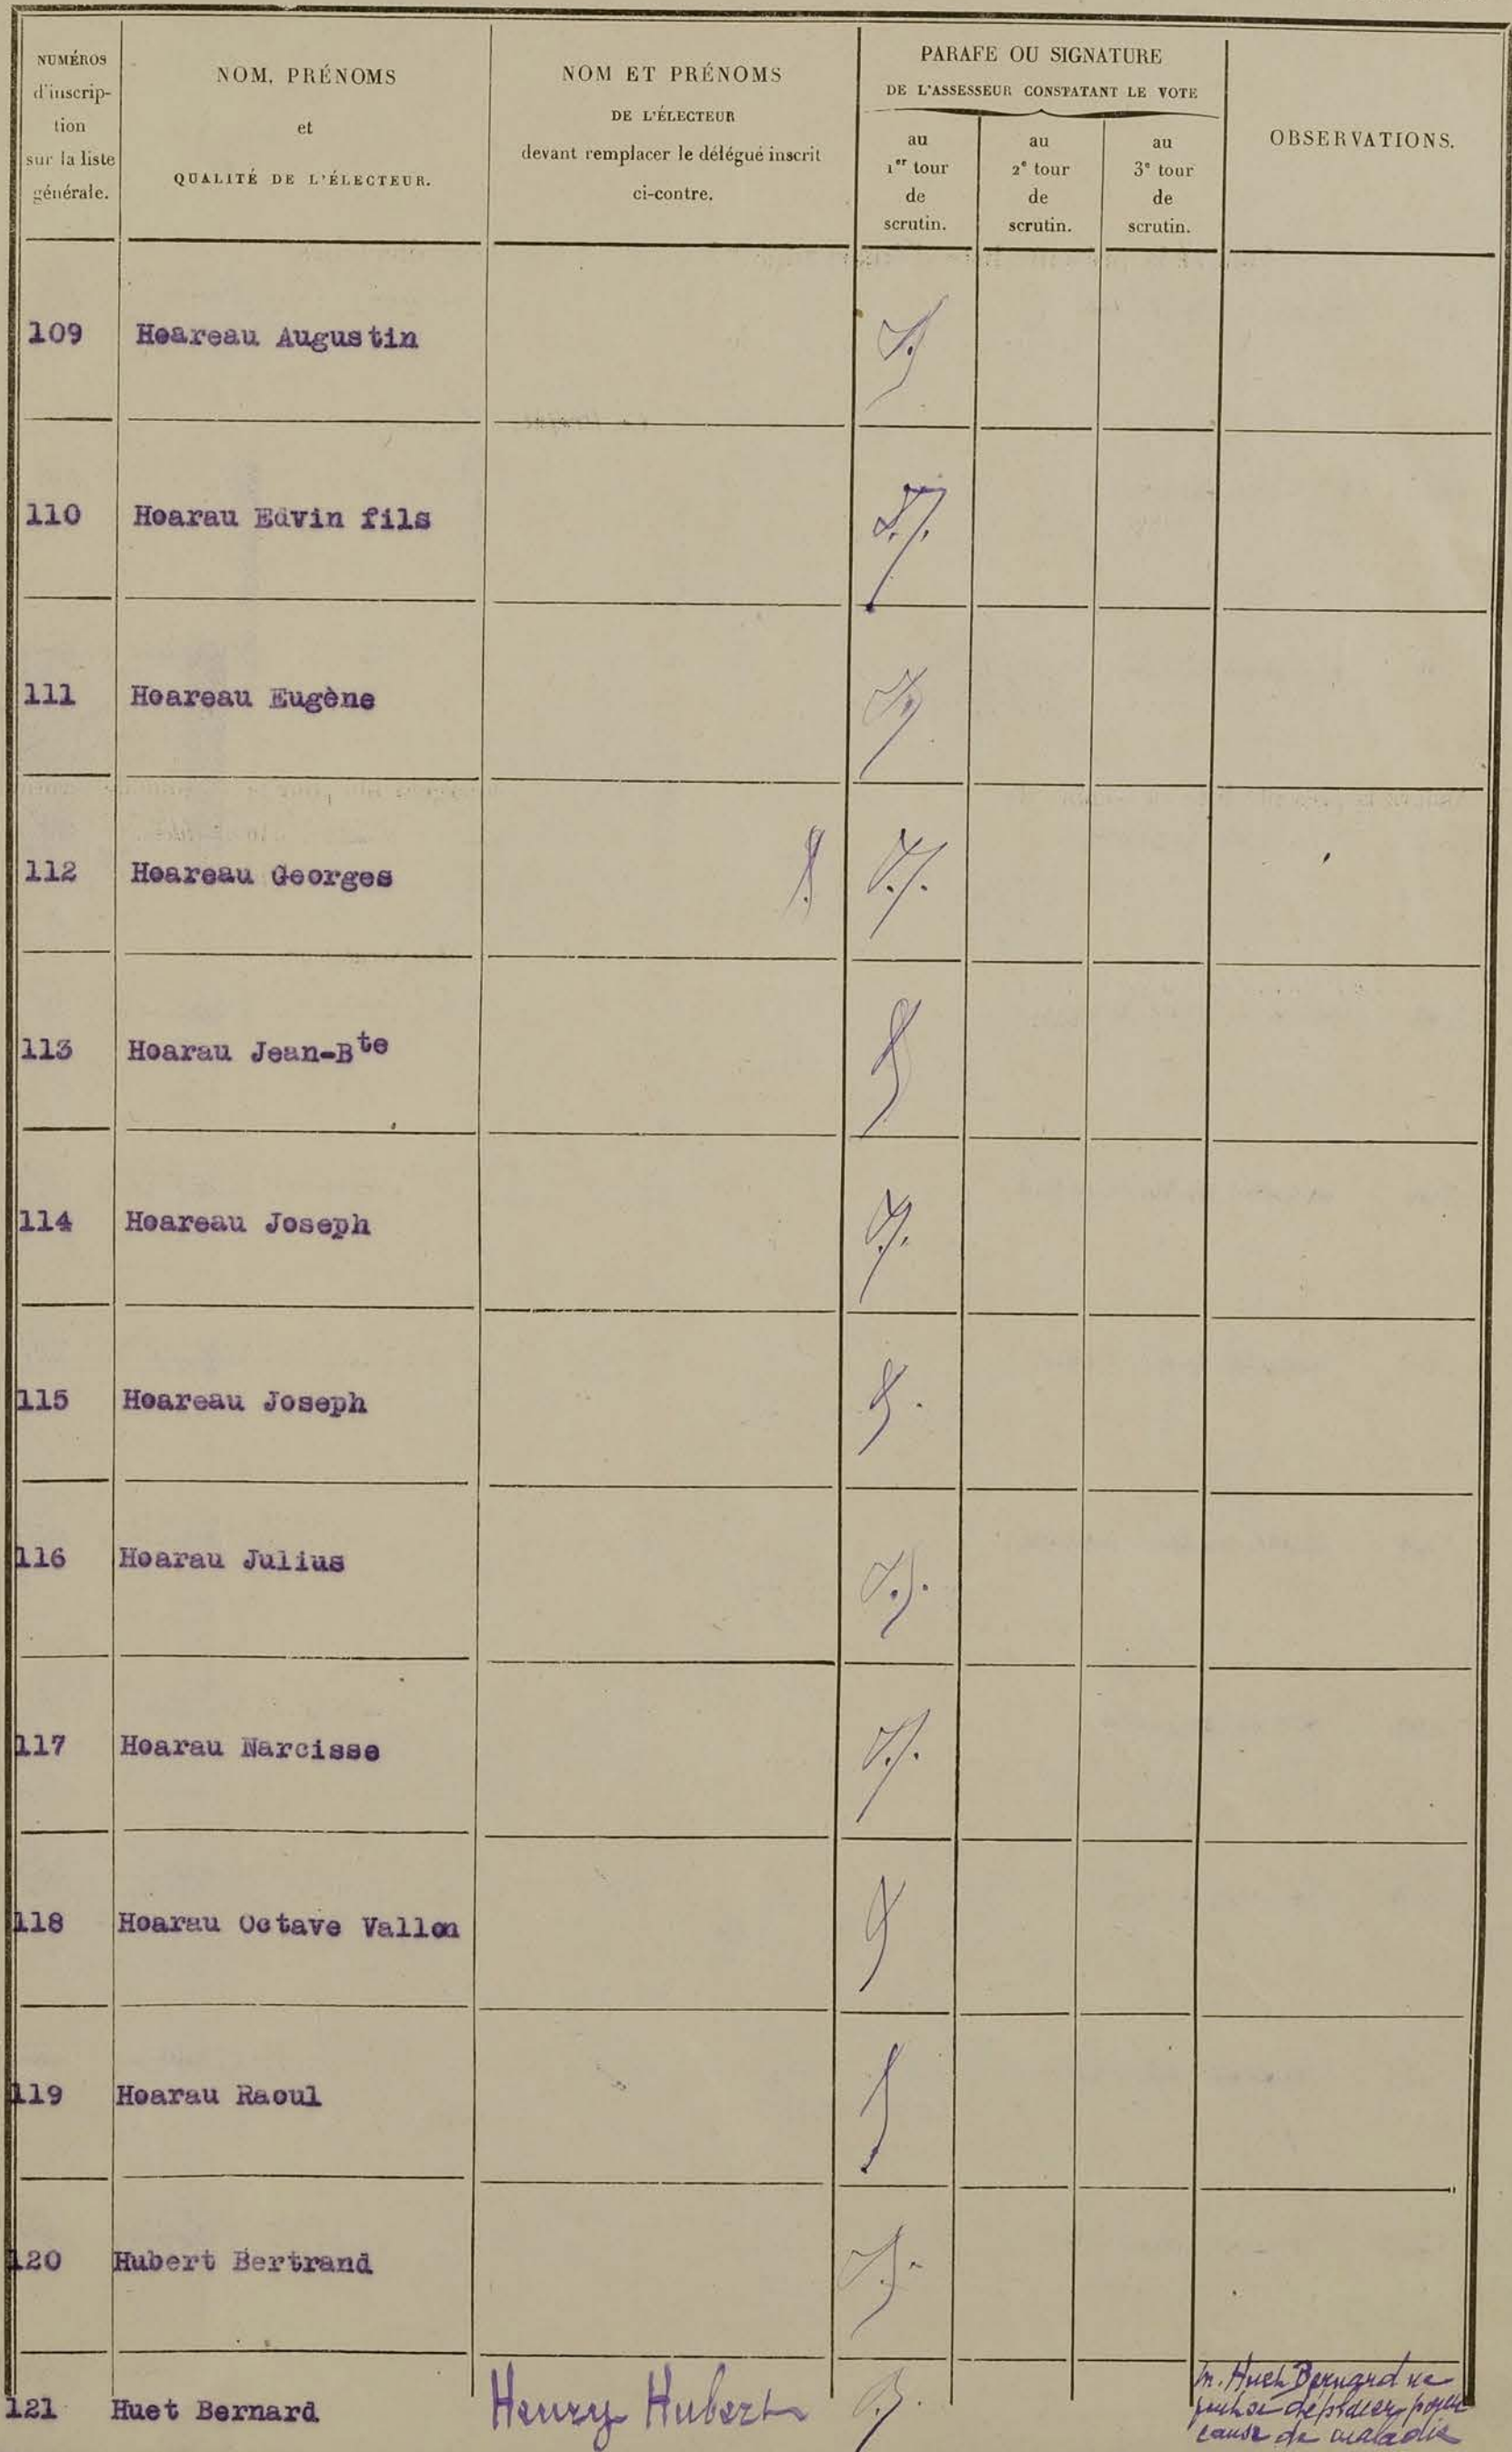 NUMÉROS
d'inscrip-
tion
sur la liste
générale.
NOM, PRÉNOMS
et
QUALITÉ DE L'ÉLECTEUR.
NOM ET PRÉNOMS
DE L'ÉLECTEUR
devant remplacer le délégué inscrit
ci-contre.
PARAFE OU SIGNATURE
DE L'ASSESSEUR CONSTATANT LE VOTE
au
1er tour
de
scrutin.
au
2e tour
de
scrutin.
au
3e tour
de
scrutin.
OBSERVATIONS.
109 Hoareau Augustin
110 Hoarau Edvin fils
111 Hoareau Eugène
112 Hoareau Georges
113 Hoarau Jean-Bte
114 Hoareau Joseph
115 Hoareau Joseph
116 Hoarau Julius
117 Hoarau Narcisse
118 Hoarau Octave Vallon
119 Hoarau Raoul
120 Hubert Bertrand
121 Huet Bernard Henry Hubert
M. Huet Bernard ne
peut se déplacer pour
cause de maladie